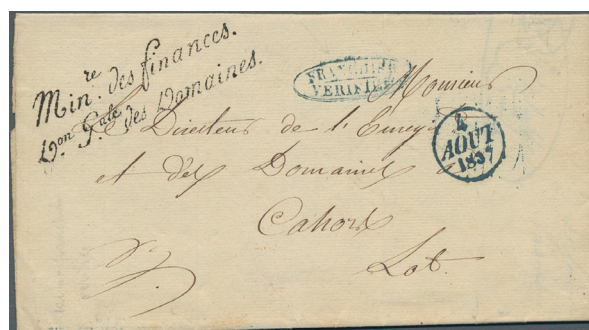 Min.re des finances.
D.on G.ale des Domaines.
FRANCHISE
VERIFIEE
Monsieur
Le Directeur de l'Enreg
et des Domaines
Cahors
Lot.
AOUT
1837